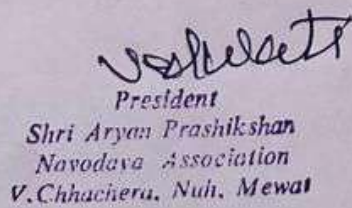 President
Shri Aryan Prashikshan
Navodaya Association
V.Chhachera, Nuh, Mewat